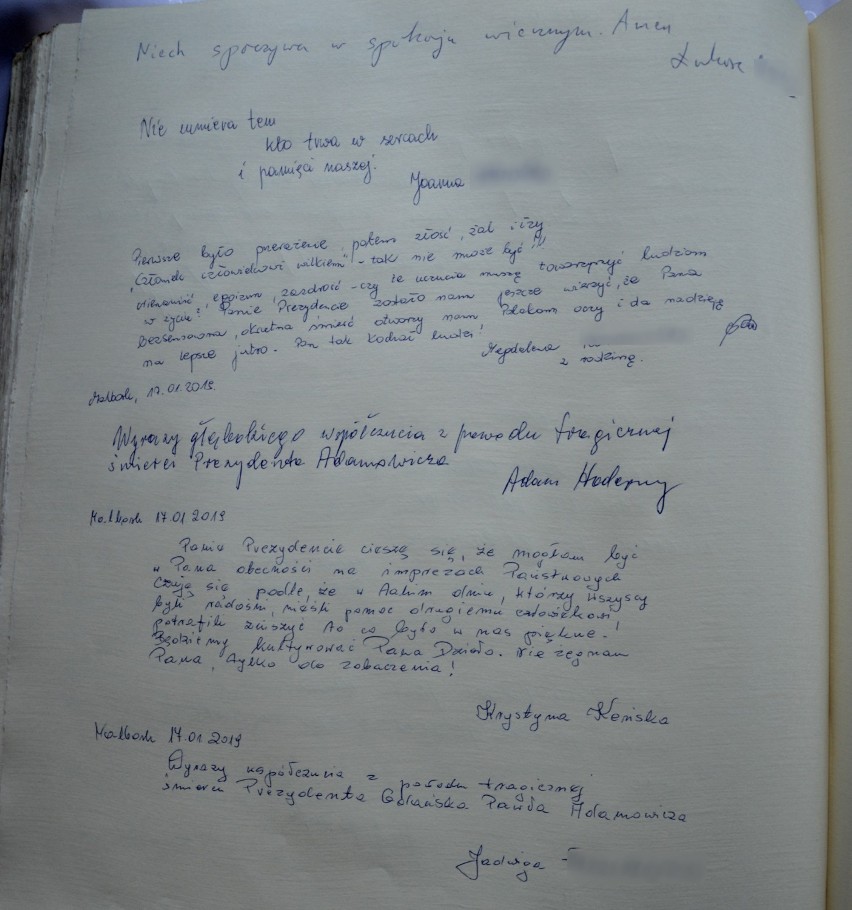 Niech spoczywa w spokoju wiecznym. Amen
Łukasz
Nie umiera ten
kto trwa w sercach
i pamięci naszej.
Joanna
Pierwsze było przerażenie, potem złość, żal i łzy
"Człowiek człowiekowi wilkiem" - tak nie może być!!!
nienawiść, egoizm, zazdrość - czy te uczucia muszą towarzyszyć ludziom
w życiu? Panie Prezydencie zostało nam jeszcze wierzyć, że Pana
bezsensowna, okrutna śmierć otworzy nam Polakom oczy i da nadzieję
na lepsze jutro. Pan tak kochał ludzi!
Magdalena
z rodziną.
Malbork, 17.01.2019.
Wyrazy głębokiego współczucia z powodu tragicznej
śmierci Prezydenta Adamowicza
Adam
Malbork 17.01 2019
Panie Prezydencie cieszę się, że mogłam być
w Pana obecności na imprezach Państwowych
Czuję się podle, że w takim dniu, którzy wszyscy
byli radośni, nieśli pomoc drugiemu człowiekowi
potrafili zniszyć to co było w nas piękne!
Będziemy kultywować Pana Dzieło. Nie żegnam
Pana, tylko do zobaczenia!
Krystyna Keńska
Malbork 17.01 2019
Wyrazy współczucia z powodu tragicznej
śmierci Prezydenta Gdańska Pawła Adamowicza
Jadwiga